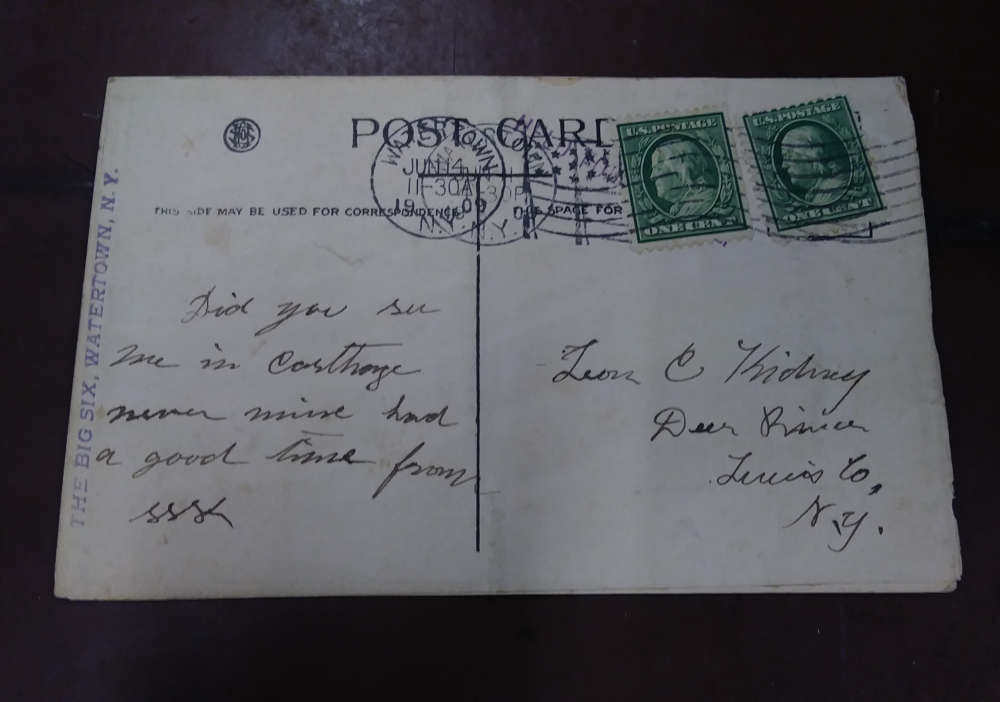 POST CARD
WATERTOWN
JUN 14
11-30A
1909
N.Y.
N.Y.
U.S. POSTAGE
ONE CENT
U.S. POSTAGE
ONE CENT
THIS SIDE MAY BE USED FOR CORRESPONDENCE
SPACE FOR
THE BIG SIX, WATERTOWN, N.Y.
Did you see
me in Carthage
never mine had
a good time from
Leon C Kidney
Deer River
Lewis Co,
N.Y.